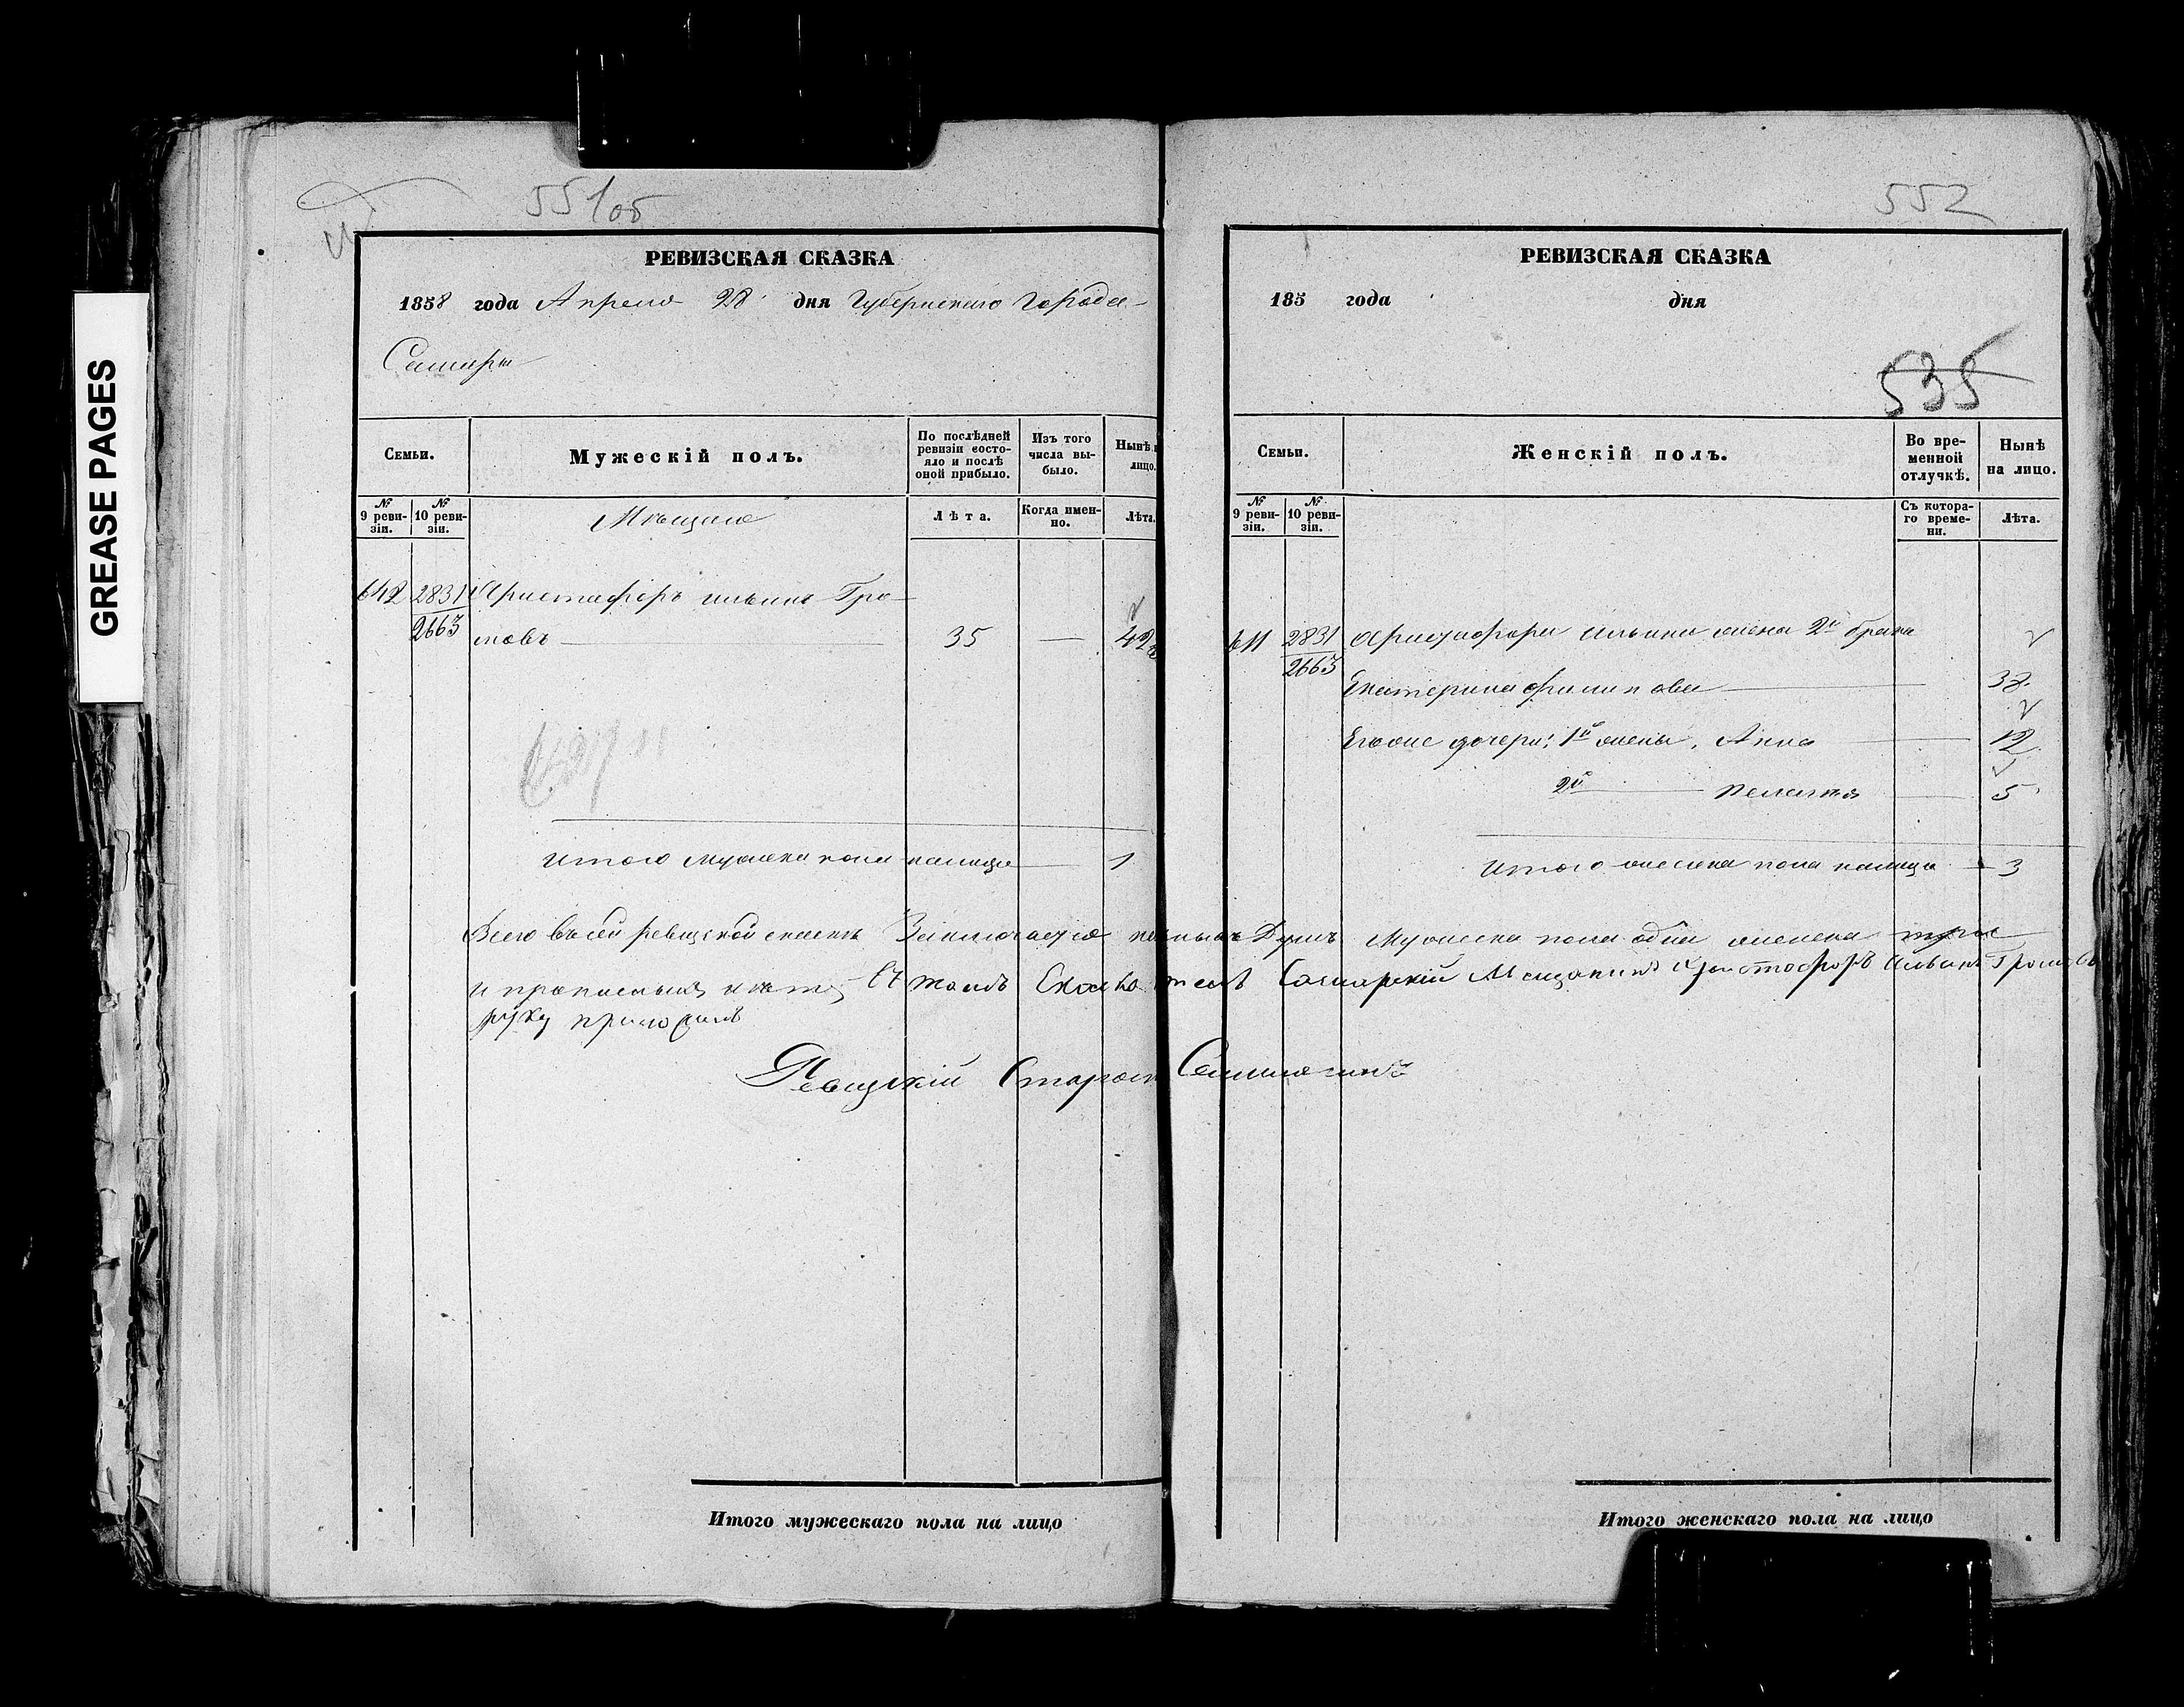 GREASE PAGES
551об
РЕВИЗСКАЯ СКАЗКА
1858 года Апреля 28 дня Губернскаго Города
Самары
Семьи.
Мужескій полъ.
По послѣдней ревизіи состояло и послѣ оной прибыло.
Изъ того числа выбыло.
Нынѣ
лицо.
№ 9 ревизіи.
№ 10 ревизіи.
Мѣщане
Лѣта.
Когда именно.
Лѣта.
642 2831 Христафоръ ильинъ Гро-
2663 мовъ 35 — 42
Итого мужска пола налицо 1
552
РЕВИЗСКАЯ СКАЗКА
185 года дня
535
Семьи.
Женскій полъ.
Во временной отлучкѣ.
Нынѣ на лицо.
№ 9 ревизіи.
№ 10 ревизіи.
Съ котораго времени.
Лѣта.
611 2831 Христофора ильина жена 2й брака
2663 Екатерина Филипова 38
Егоже дочери: 1й жены, Анна 12
2й Пелагия 5
Итого женска пола налицо 3
Всего въсей ревизской сказкѣ Заключается Душъ Мужеска пола одна женска три
и прописныхъ нѣтъ Въ томъ Сказкѣ Самарскій Мещанинъ Христофоръ Ильинъ Громовъ
руку приложилъ
Ревизскій Старост
Итого мужескаго пола на лицо
Итого женскаго пола на лицо